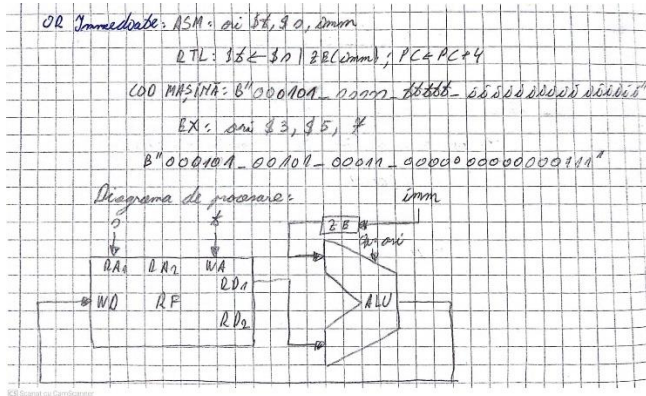 OR Immediate: ASM: ori $t, $s, imm
RTL: $t ← $s | ZE(imm); PC ← PC+4
COD MAȘINĂ: B"000101_sssss_ttttt_iiiiiiiiiiiiiiii"
EX: ori $3, $5, 7
B"000101_00101_00011_0000000000000111"
Diagrama de procesare:
imm
s t
ZE
ori
RA1 RA2 WA
RD1
WD RF ALU
RD2
CS Scanat cu CamScanner